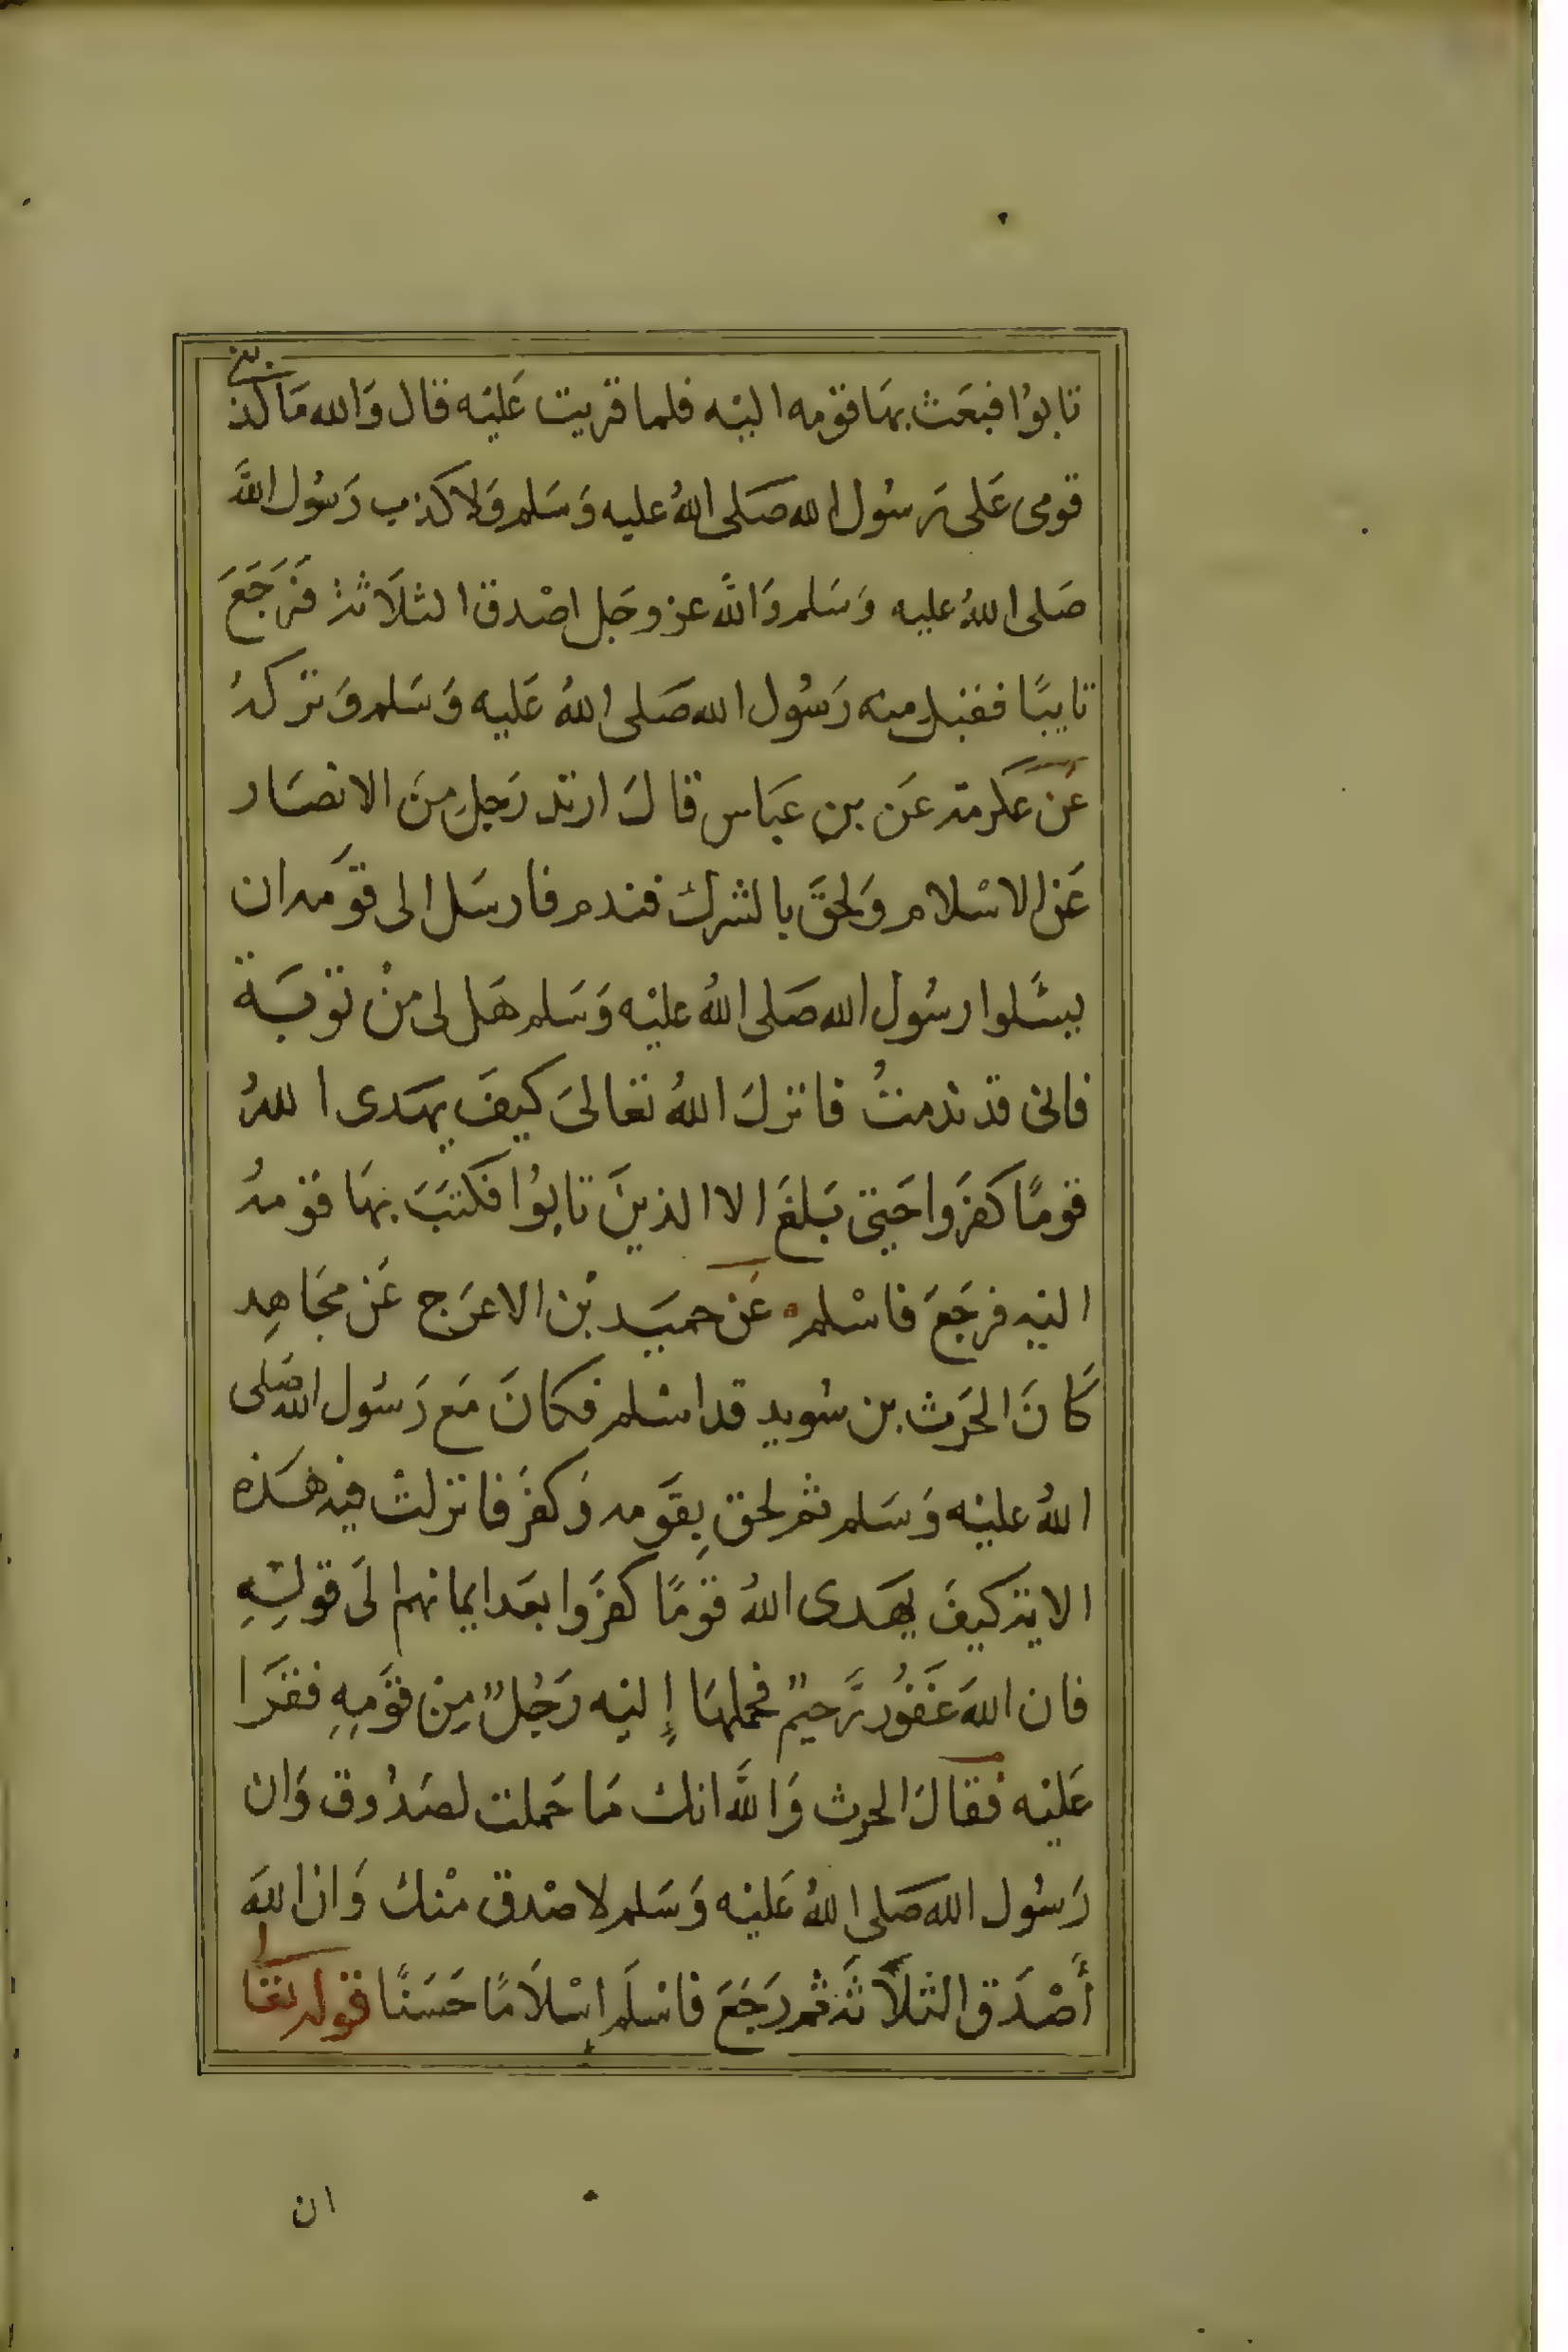 تابوُا فبعَث بهَا قومه اليْه فلما قريت عَليْه قال وَالله مَا كذبنى
قومى عَلى رسُول الله صَلى اللهُ عليه وَسَلم وَلا كذب رَسُول اللهَّ
صَلى اللهُ عليه وَسَلم وَاللهَّ عز وجَل اصْدق الثلاَثة فَرَجَعَ
تايبًا فقبل منه رَسُول الله صَلى اللهُ عَليه وَسَلم وَتركهُ
عَن عكرمة عَن بن عبَاس قالَ ارتد رَجل مِنَ الانصَار
عَن الاسْلام وَلحقَ بالشرك فندم فارسَل الى قوَمه ان
يسَّلوا رسُول الله صَلى اللهُ عليْه وَسَلم هَل لى منْ توبَة
فانى قد ندمتُ فانزلَ اللهُ تعَالىَ كيفَ يهَدى اللهُ
قومًا كفَروا حَتى بَلغَ الا الذينَ تابوُا فكتبَ بهَا قومهُ
اليه فرجَعَ فاسْلم عَن حميَد بْن الاعرَج عَن مجَاهِد
كاَنَ الحَرث بن سُويد قد اسْلم فكانَ مَع رَسُول الله صَلى
اللهُ عليْه وَسَلم ثم لحق بِقوَمه وَكفَر فانزلتْ فيه هَذه
الاية كيفَ يهَدى اللهُ قومًا كفَروا بعَد ايمانهم الىَ قولِهِ
فان اللهَ غَفُور رَّحيمٌ فحملهَا إليْه رَجُلٌ مِن قوَمِهِ فقرَا
عَليْه فقالَ الحرث وَاللهَّ انك مَا حَملت لصَدُوق وَان
رَسُول الله صَلى اللهُ عَليْه وَسَلم لاصْدق منْك وَان اللهَ
أصْدَق الثلاَثَة ثم رَجَعَ فاسْلَم إسْلاَمًا حَسَنًا قوله تعَالى
ان